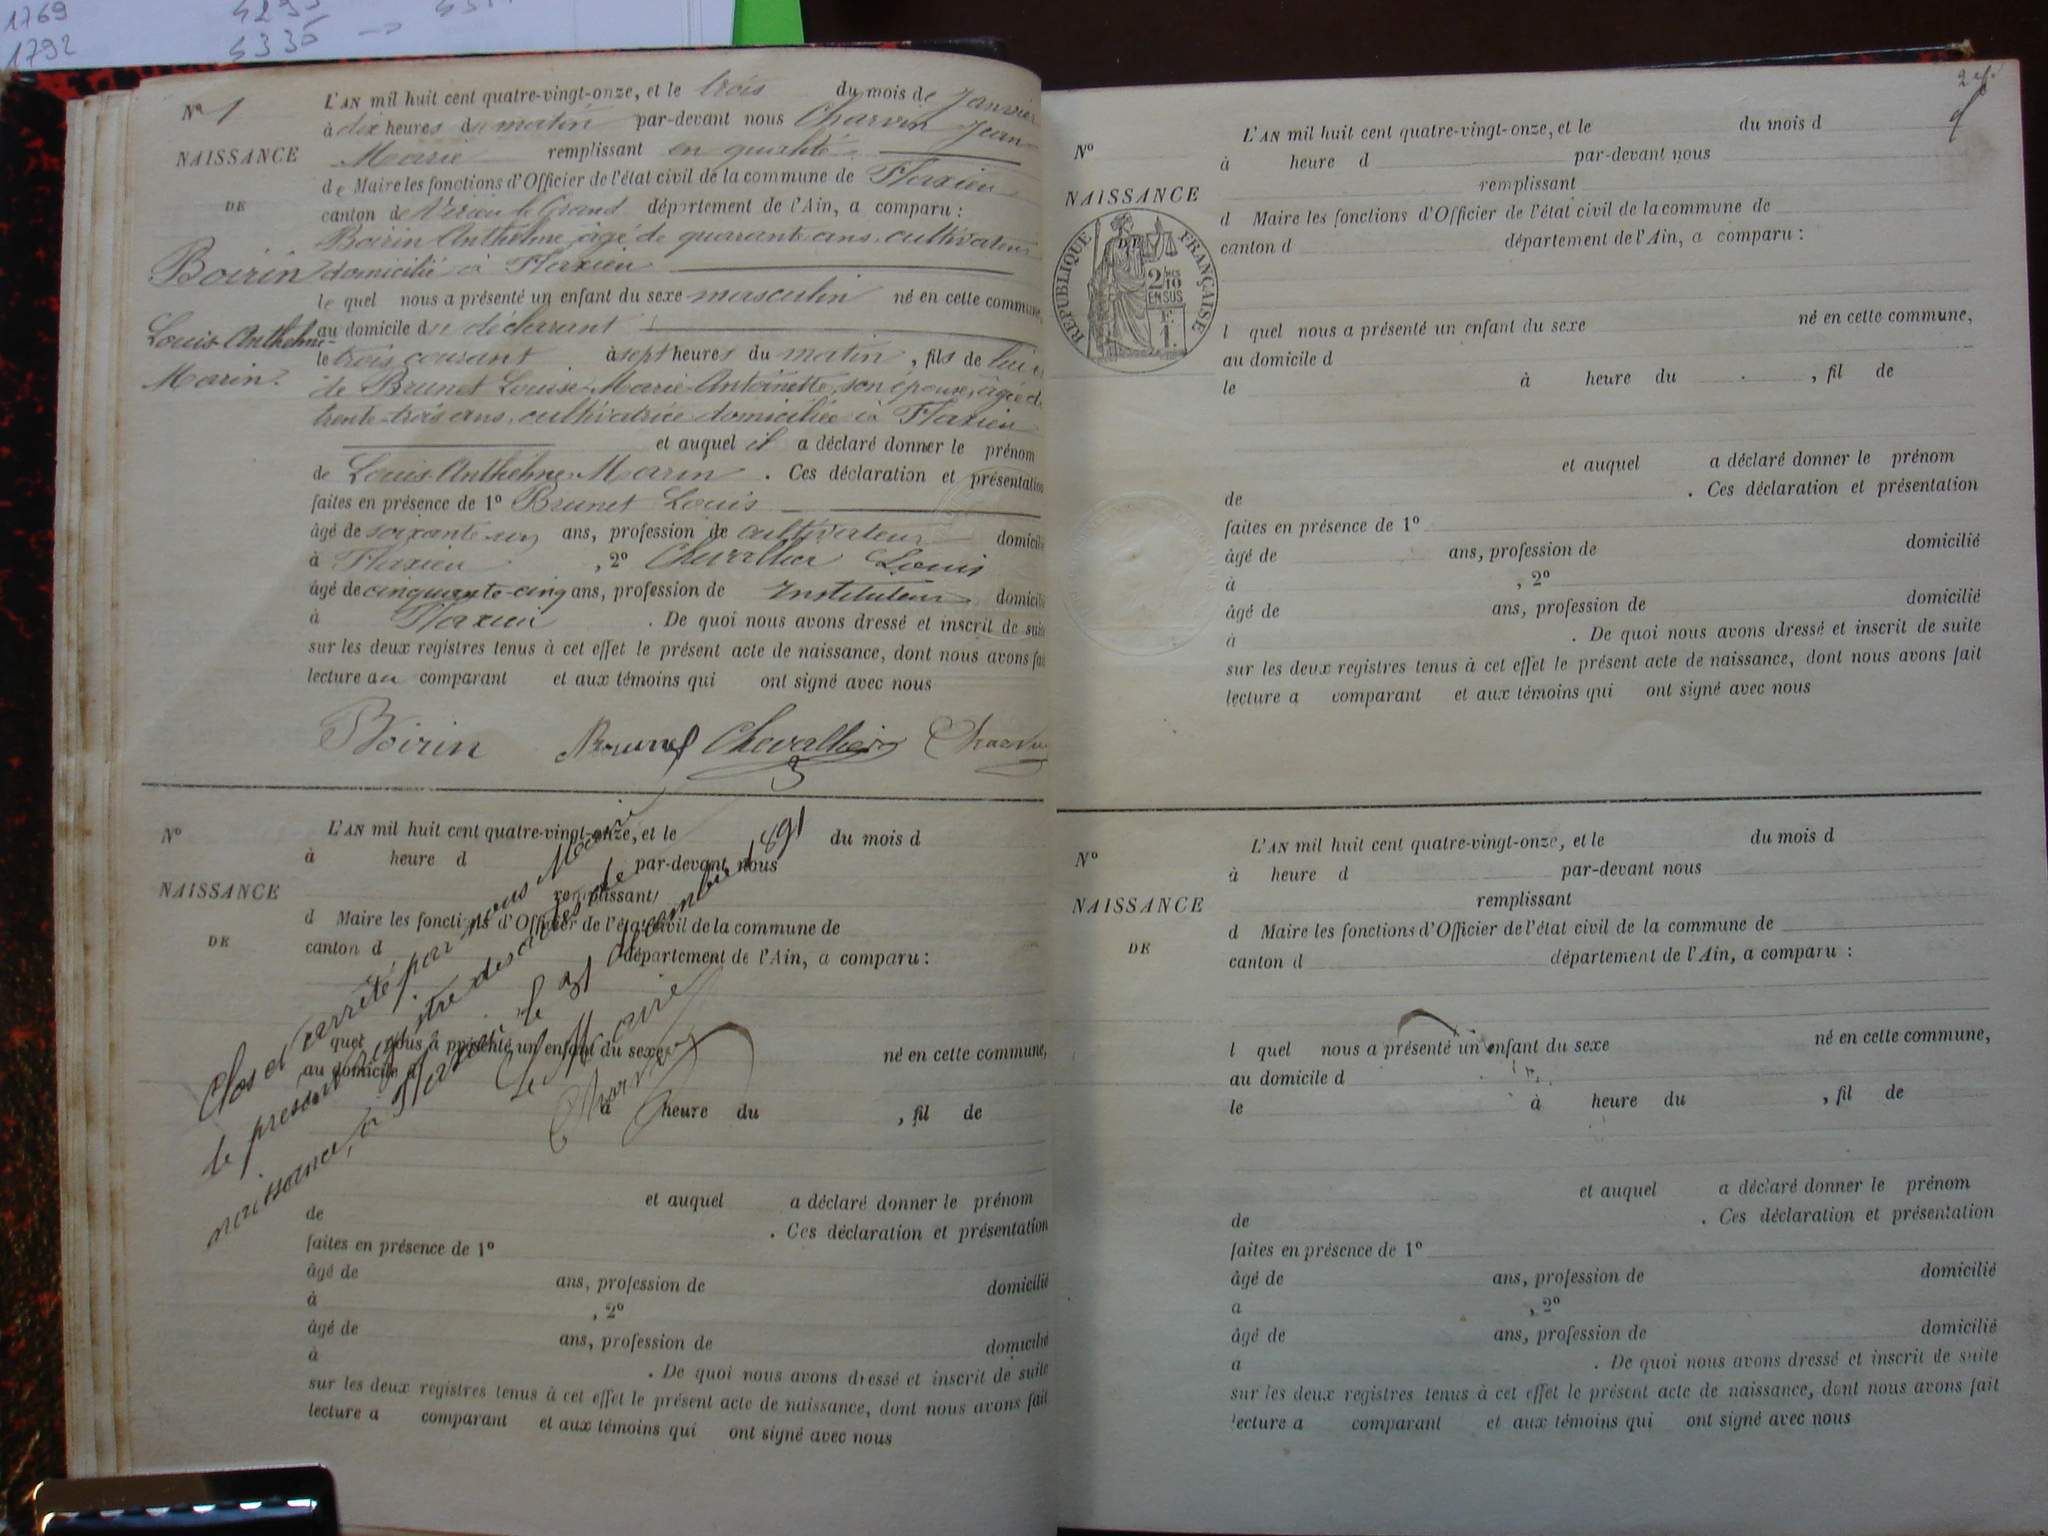 1769
1792
4335
N° 1
NAISSANCE
DE
Boirin
Louis Anthelme
Marin.
L'AN mil huit cent quatre-vingt-onze, et le trois du mois de Janvier
à dix heures du matin par-devant nous Charvin Jean
Marie remplissant en qualité
de Maire les fonctions d'Officier de l'état civil de la commune de Flaxieu
canton de Virieu le Grand département de l'Ain, a comparu :
Boirin Anthelme, âgé de quarante ans, cultivateur
domicilié à Flaxieu
le quel nous a présenté un enfant du sexe masculin né en cette commune,
au domicile du déclarant
le trois courant à sept heures du matin, fils de lui et
de Brunet Louise Marie Antoinette, son épouse, âgée de
trente-trois ans, cultivatrice domiciliée à Flaxieu
et auquel il a déclaré donner le prénom
de Louis Anthelme Marin. Ces déclaration et présentation
faites en présence de 1° Brunet Louis
âgé de soixante-un ans, profession de cultivateur domicilié
à Flaxieu, 2° Chevallier Louis
âgé de cinquante-cinq ans, profession de Instituteur domicilié
à Flaxieu. De quoi nous avons dressé et inscrit de suite
sur les deux registres tenus à cet effet le présent acte de naissance, dont nous avons fait
lecture au comparant et aux témoins qui ont signé avec nous
Boirin Brunet Chevallier Charvin
N°
NAISSANCE
DE
L'AN mil huit cent quatre-vingt-onze, et le du mois d
à heure d par-devant nous
remplissant
d Maire les fonctions d'Officier de l'état civil de la commune de
canton d département de l'Ain, a comparu :
quel nous a présenté un enfant du sexe né en cette commune,
au domicile d
à heure du , fil de
et auquel a déclaré donner le prénom
de . Ces déclaration et présentation
faites en présence de 1°
âgé de ans, profession de domicilié
à , 2°
âgé de ans, profession de domicilié
à . De quoi nous avons dressé et inscrit de suite
sur les deux registres tenus à cet effet le présent acte de naissance, dont nous avons fait
lecture a comparant et aux témoins qui ont signé avec nous
Clos et arrêté par nous Maire
le présent registre des actes de
naissance, à Flaxieu le 31 décembre 1891
Le Maire
Charvin
N°
NAISSANCE
RÉPUBLIQUE FRANÇAISE
2/10
EN SUS
F.
1.
L'AN mil huit cent quatre-vingt-onze, et le du mois d
à heure d par-devant nous
remplissant
d Maire les fonctions d'Officier de l'état civil de la commune de
canton d département de l'Ain, a comparu :
l quel nous a présenté un enfant du sexe né en cette commune,
au domicile d
le à heure du , fil de
et auquel a déclaré donner le prénom
de . Ces déclaration et présentation
faites en présence de 1°
âgé de ans, profession de domicilié
à , 2°
âgé de ans, profession de domicilié
à . De quoi nous avons dressé et inscrit de suite
sur les deux registres tenus à cet effet le présent acte de naissance, dont nous avons fait
lecture a comparant et aux témoins qui ont signé avec nous
N°
NAISSANCE
DE
L'AN mil huit cent quatre-vingt-onze, et le du mois d
à heure d par-devant nous
remplissant
d Maire les fonctions d'Officier de l'état civil de la commune de
canton d département de l'Ain, a comparu :
l quel nous a présenté un enfant du sexe né en cette commune,
au domicile d
le à heure du , fil de
et auquel a déclaré donner le prénom
de . Ces déclaration et présentation
faites en présence de 1°
âgé de ans, profession de domicilié
a , 2°
âgé de ans, profession de domicilié
a . De quoi nous avons dressé et inscrit de suite
sur les deux registres tenus à cet effet le présent acte de naissance, dont nous avons fait
lecture a comparant et aux témoins qui ont signé avec nous